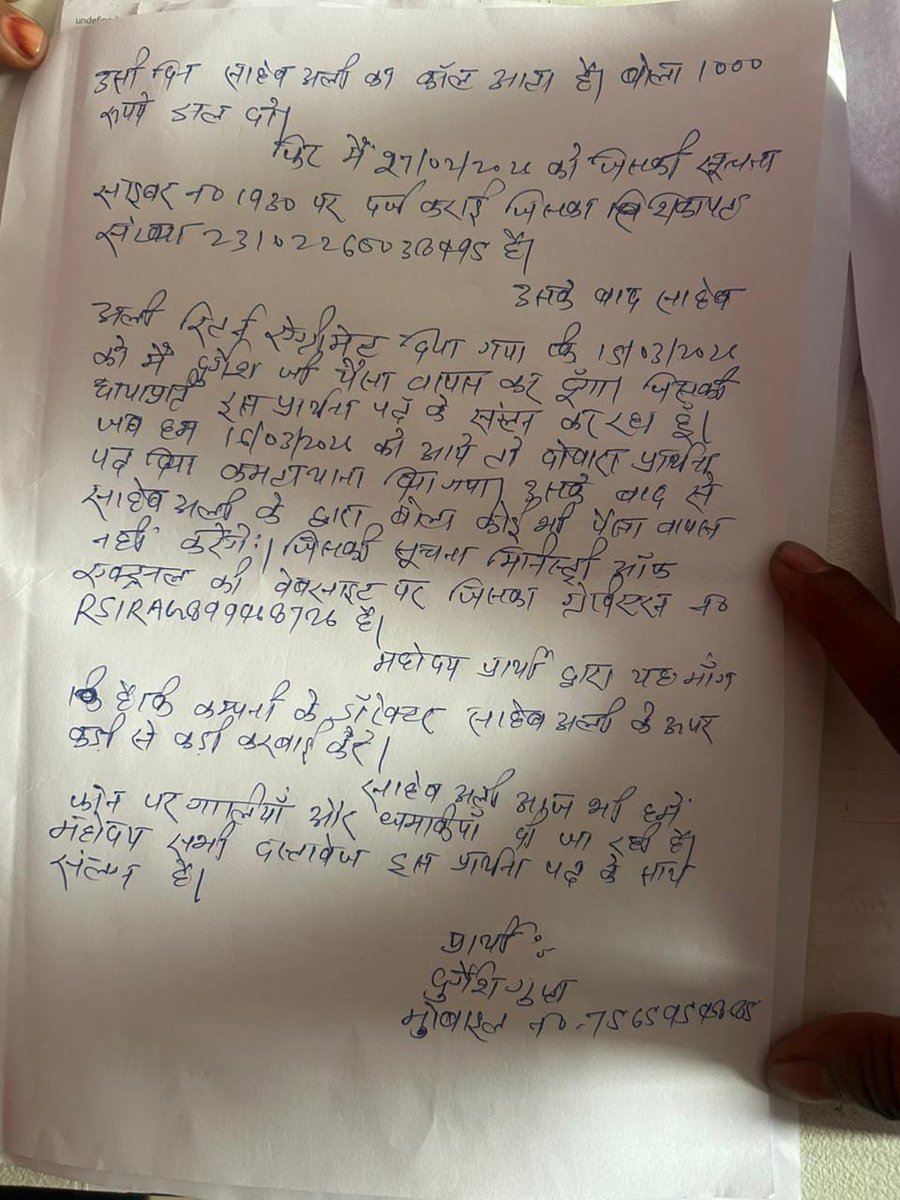 undefin
उसी दिन साहेब अली का कॉल आता है। बोला 1000
रूपये डाल दो।
फिर मैं 27/02/2026 को जिसकी सूचना
साइबर no 1930 पर दर्ज कराई जिसका शिकायत
संख्या है।
उसके बाद साहेब
अली रिटर्न एग्रीमेंट दिया गया कि 15/03/2026
को मैं दुर्गेश जी पैसा वापस कर दूँगा। जिसकी
छायाप्रति इस प्रार्थना पत्र के संलग्न कर रहा हूँ।
जब हम 16/03/2026 को आये तो दोबारा प्रार्थना
पत्र दिया थाना दिया गया। उसके बाद से
साहेब अली के द्वारा बोला कोई भी पैसा वापस
नहीं करेंगे। जिसकी सूचना मिनिस्ट्री ऑफ
की वेबसाइट पर जिसका no
है।
महोदय प्रार्थी द्वारा यह माँग
है कि कम्पनी के डॉरेक्टर साहेब अली के ऊपर
कड़ी से कड़ी करवाई करें।
साहेब अली आज भी हमें
फोन पर गालियाँ और धमकियाँ दी जा रही है।
महोदय सभी दस्तावेज इस प्रार्थना पत्र के साथ
संलग्न है।
प्रार्थी :
दुर्गेश गुप्ता
मोबाइल no.